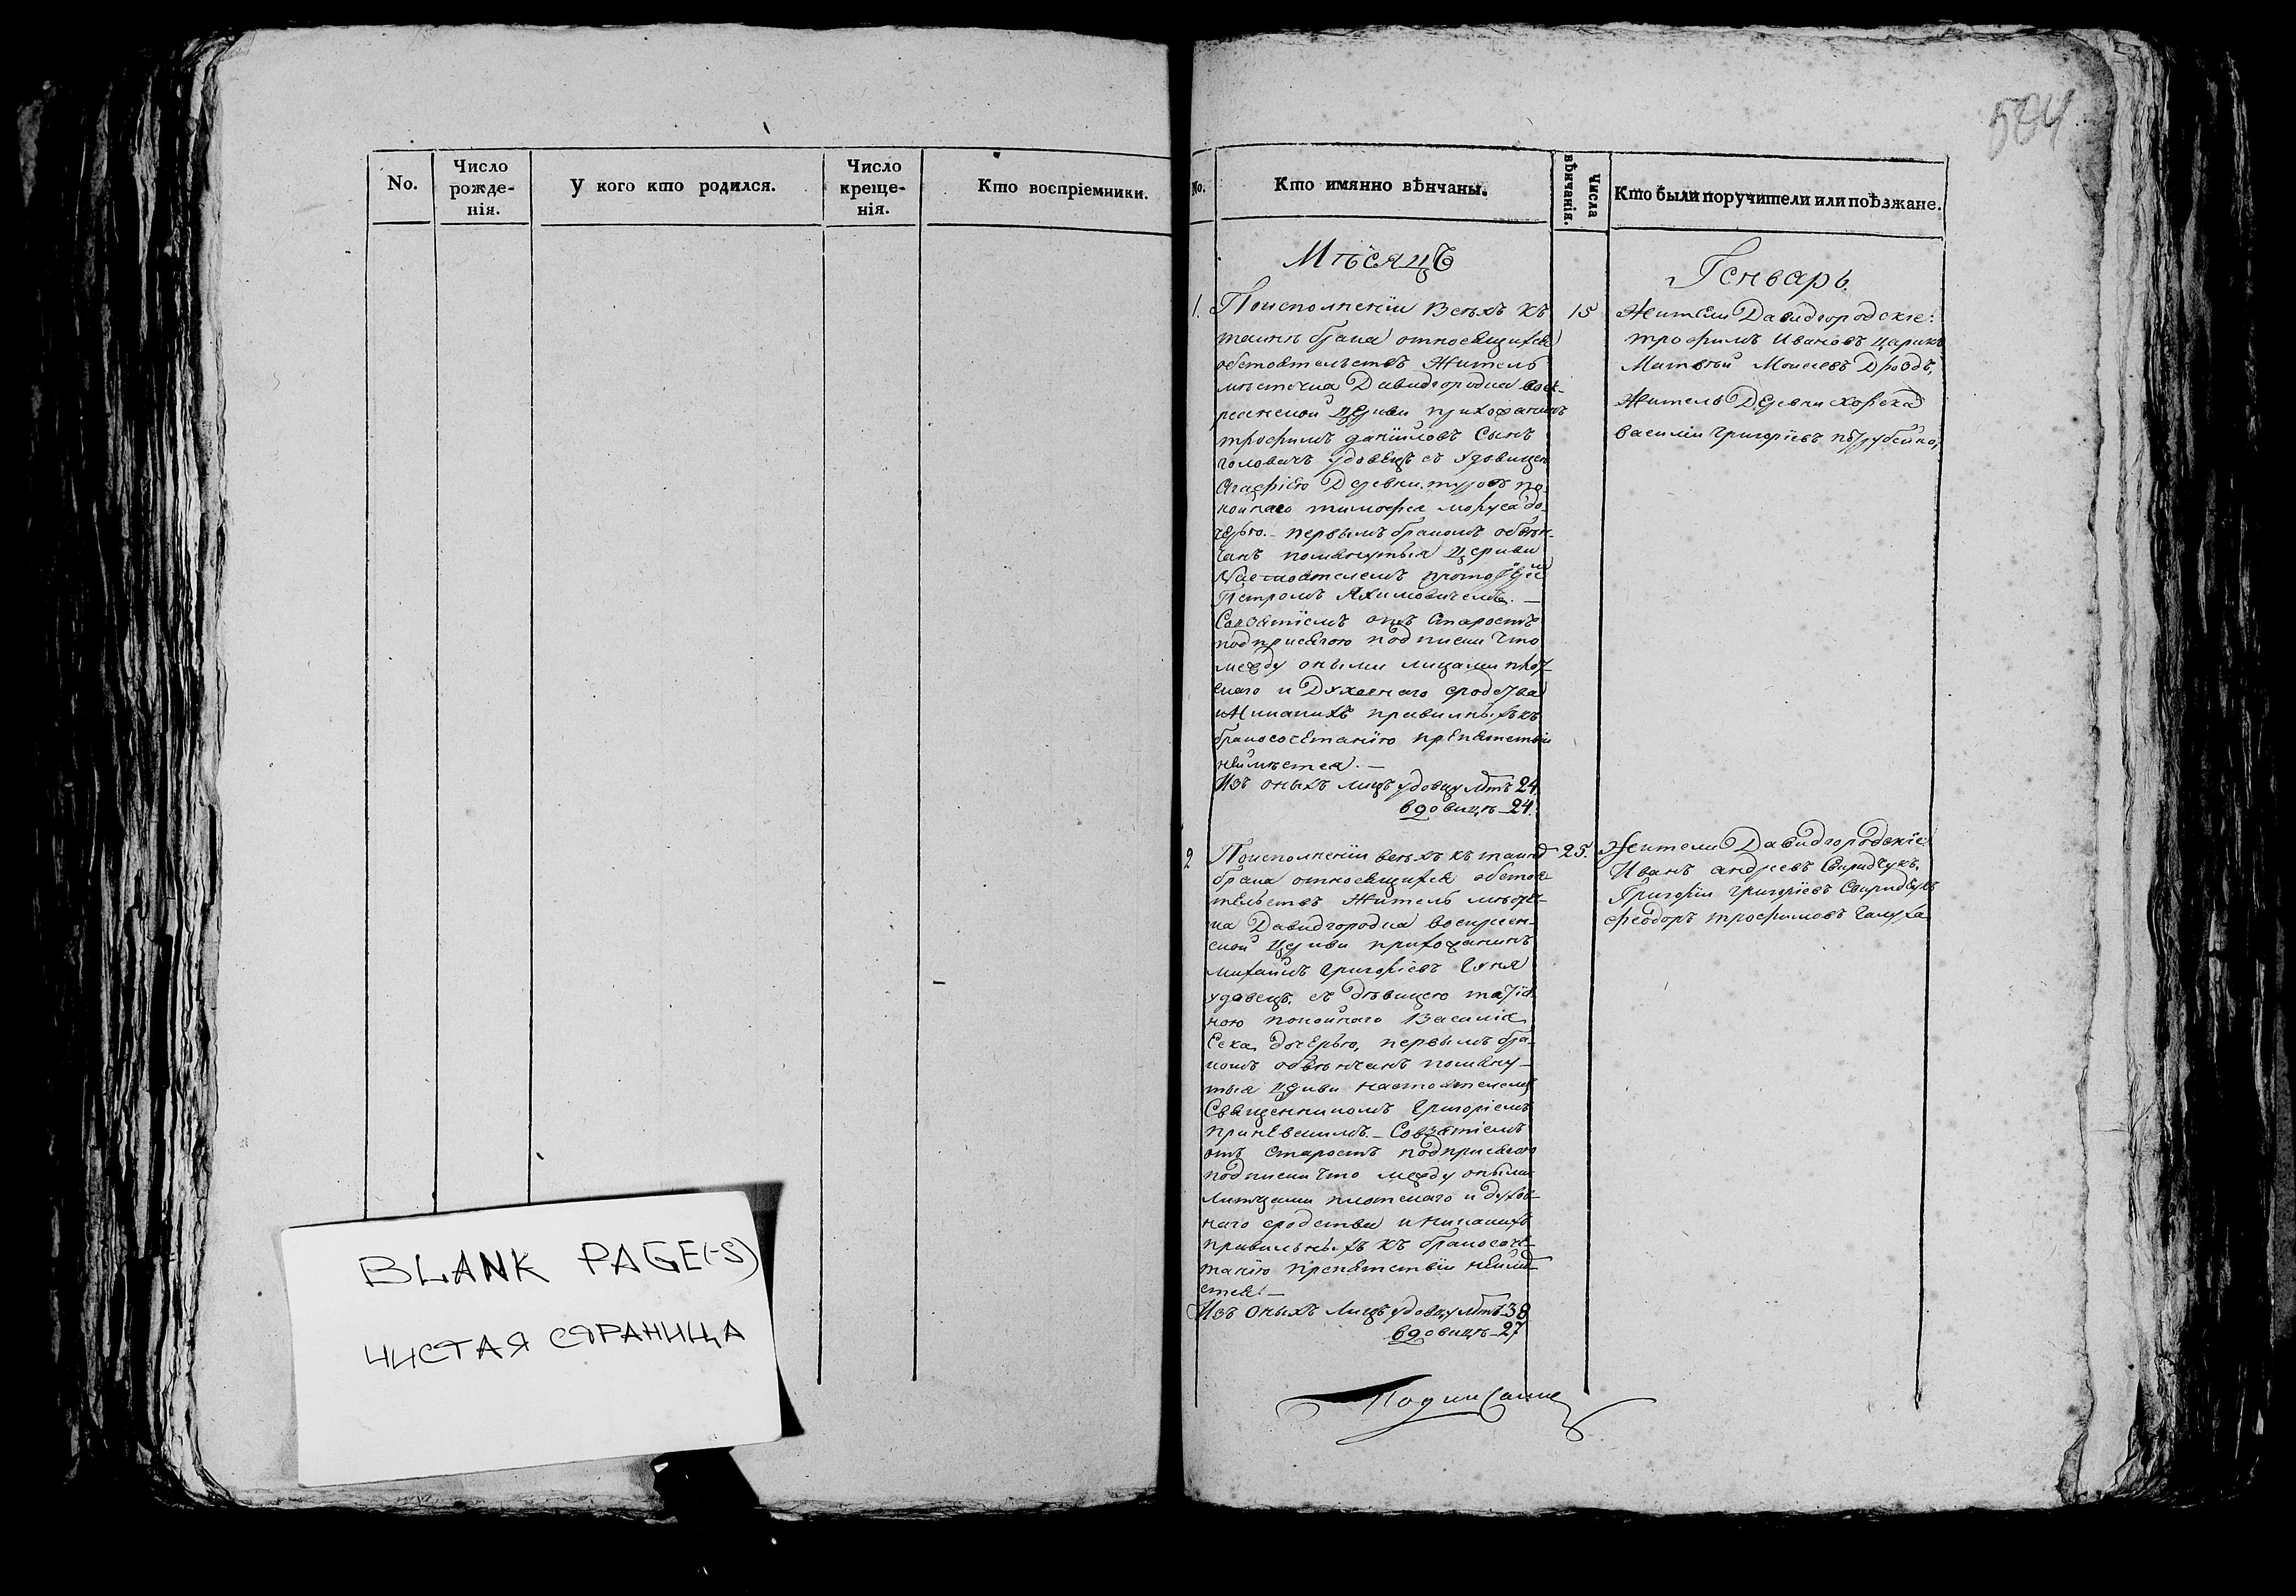 No.
Число рожде-
нія.
У кого кто родился.
Число креще-
нія.
Кто воспріемники.
BLANK PAGE(-S)
ЧИСТАЯ СТРАНИЦА
504
No.
Кто имянно вѣнчаны.
Числа вѣнчанія.
Кто были поручители или поѣзжане.
Мѣсяцъ
Генварь
1.
По исполненіи всѣхъ къ
таинѣ брака относящихся
обстоятельствъ Житель
мѣстечка Давидгородка Воск-
ресенской Церкви прихожанинъ
трофимъ даніиловъ Сынъ
головачъ удовецъ съ удовицею
Агафіею Деревни туровъ по-
койнаго тимофея моруса до-
черью первымъ бракомъ обвѣн-
чанъ помянутыя Церкви
Настоятелемъ протоіерее
Петромъ Якимовичемъ. —
Со взятіемъ отъ Старостъ
под присягою подписки что
между оными лицами плот-
скаго и Духовнаго сродства
и Никакихъ правилныхъ къ
бракосочетанію препятствіи
неимѣется. —
Изъ оныхъ лицъ удовцу лѣтъ 24.
вдовицѣ 24.
15
Жители Давидгородскіе:
трофимъ Ивановъ Царикъ
Матвѣй Моисеевъ Дроздъ,
Житель Деревни Хорска
василіи григоріевъ
2
По исполненіи всѣхъ къ таинѣ
брака относящихся обстоя-
тельствъ Житель мѣстеч-
ка Давидгородка Воскресен-
ской Церкви прихожанинъ
михаилъ григоріевъ
удовецъ, съ дѣвицею татія-
ною покойнаго Василія
дочерью, первымъ бра-
комъ обвѣнчанъ помяну-
тыя Церкви настоятелемъ
Священникомъ Григоріемъ
Со взятіемъ
отъ Старостъ под присягою
подписки что между оными
литцами плотскаго и духов-
наго сродства и никакихъ
правильныхъ къ бракосоче-
танію препятствіи неимѣ-
ется. —
Изъ Оныхъ Лицъ удовцу лѣтъ 38
вдовицѣ 27
25.
Жители Давидгородскіе
Иванъ андреевъ Свиридчукъ,
Григоріи григоріевъ Свиридчукъ
феодоръ трофимовъ